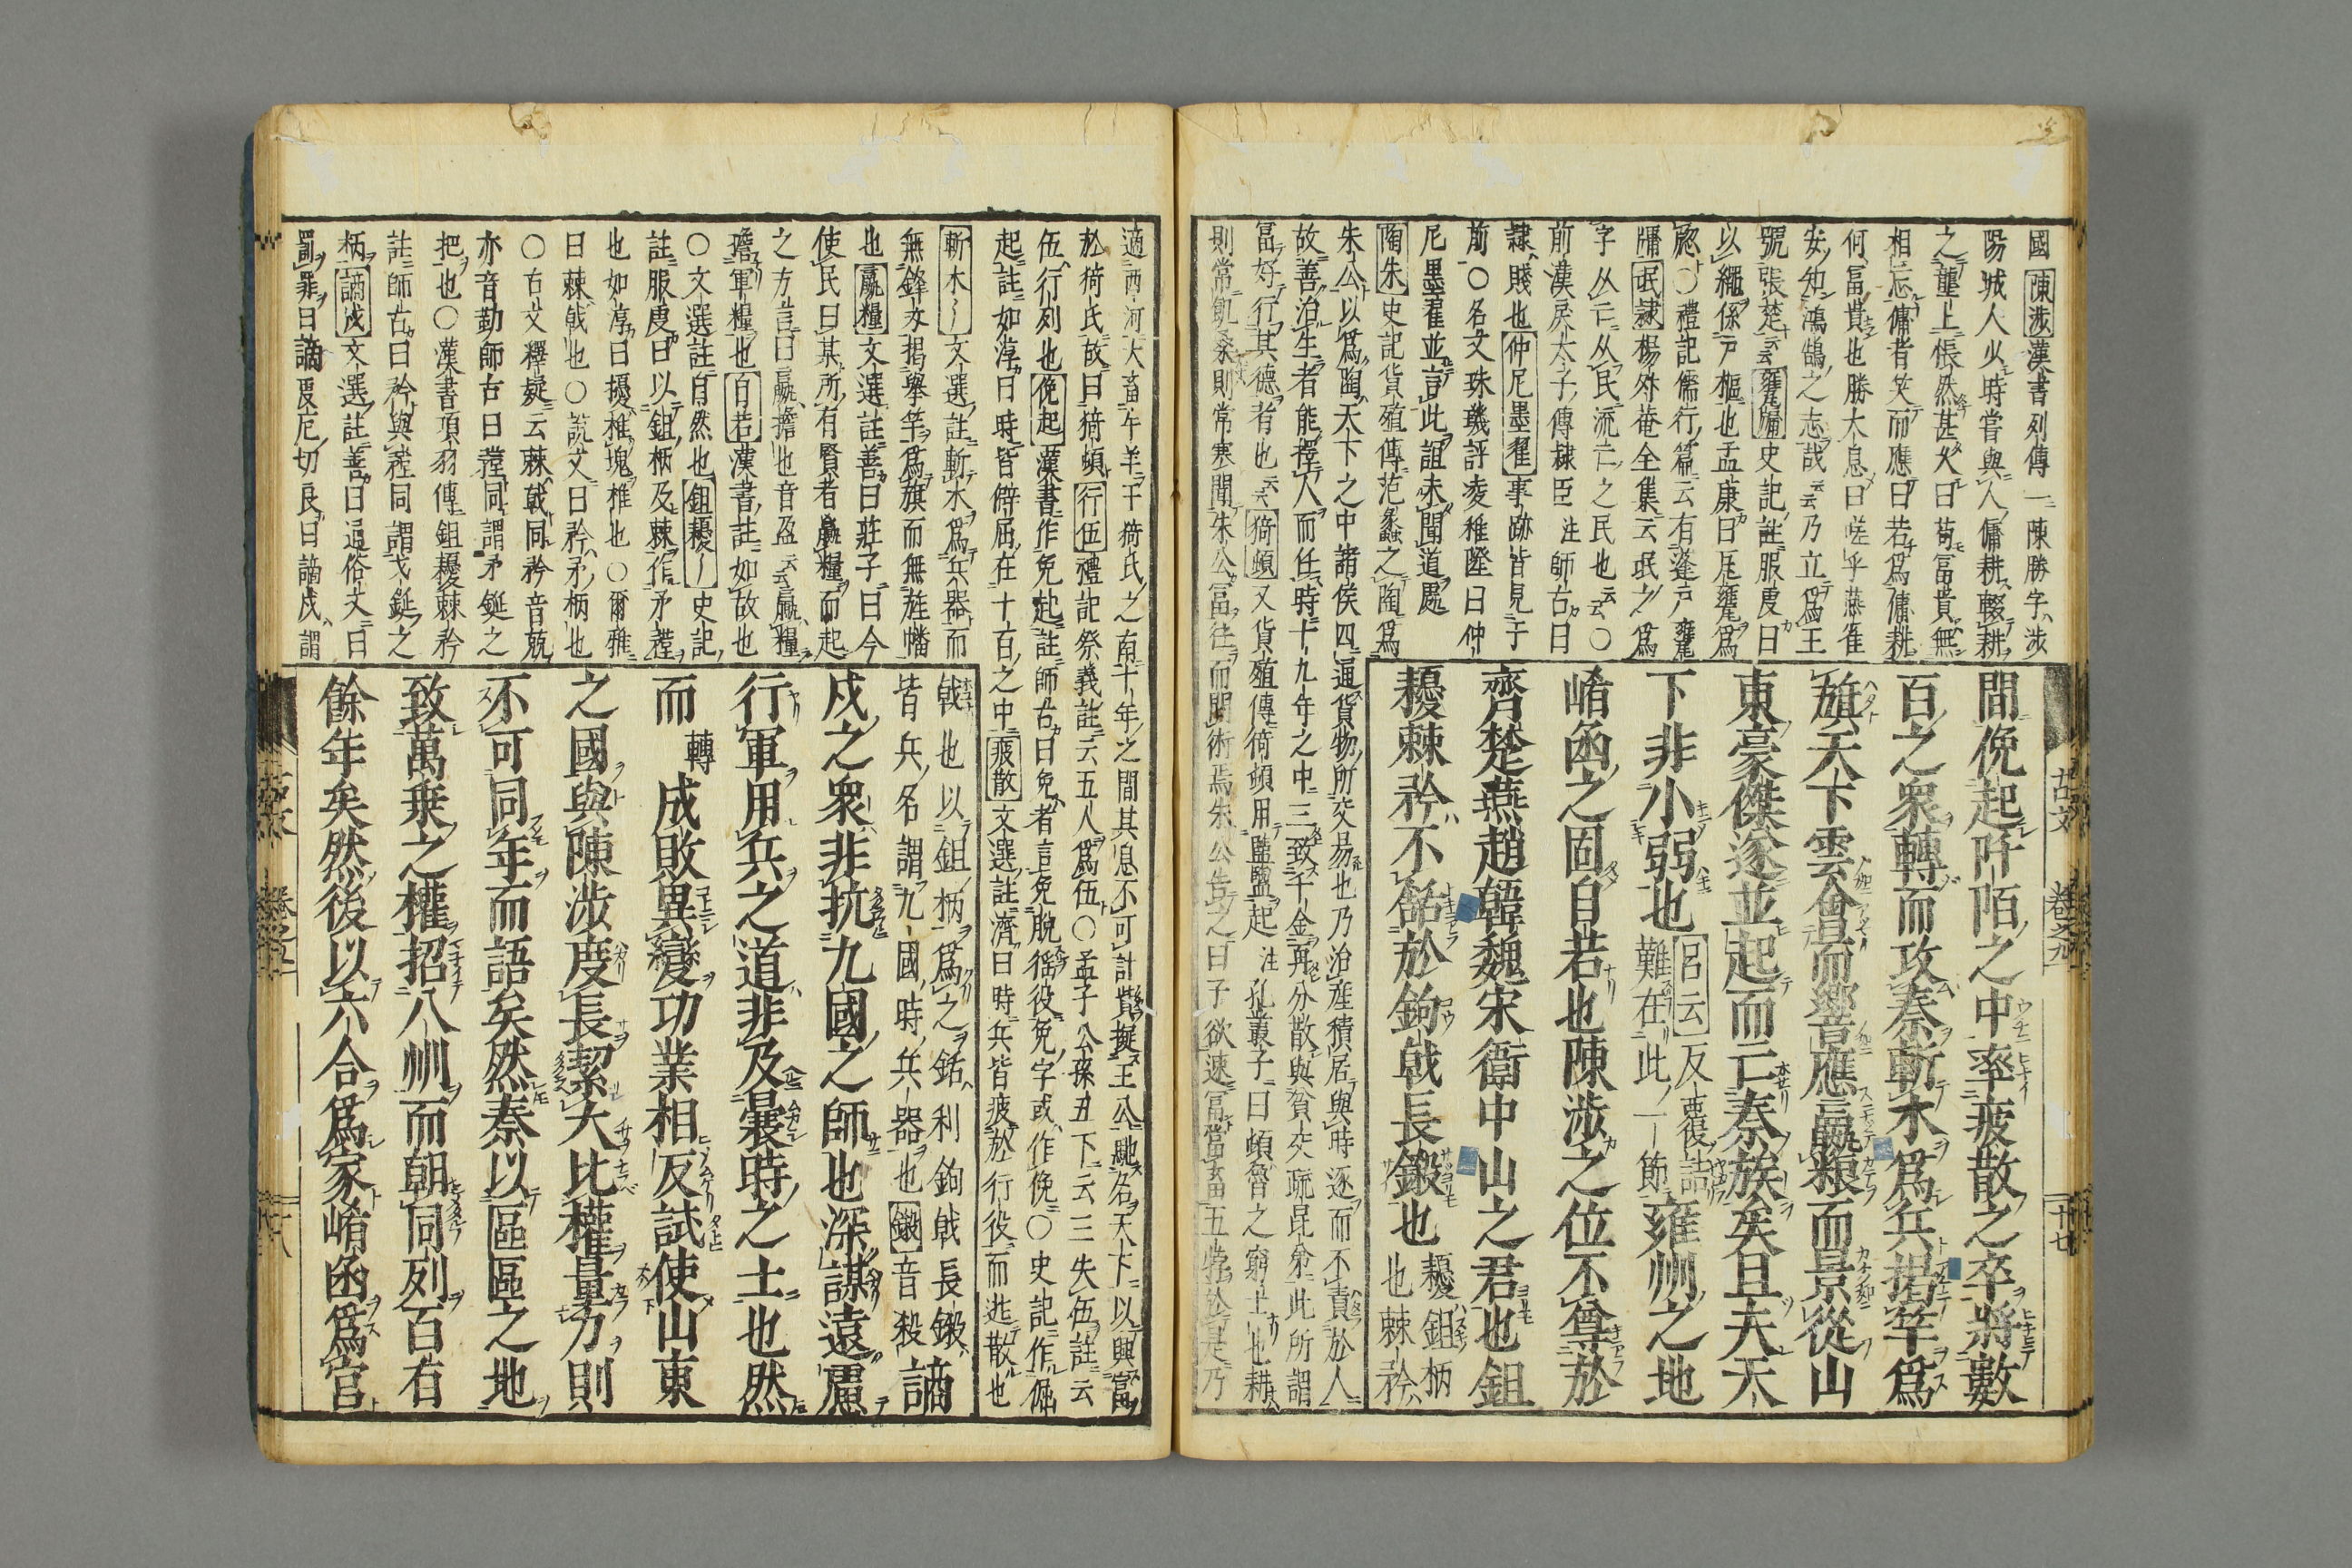 國陳涉漢書列傳一陳勝字涉
陽城人少時嘗與人傭耕輟耕
之壟上悵然甚久曰苟富貴無
相忘傭者笑而應曰若爲傭耕
何富貴也勝大息曰嗟乎燕雀
安知鴻鵠之志哉云云乃立爲王
號張楚云云甕牖史記註服虔曰
以繩係戶樞也孟康曰瓦甕爲
窓○禮記儒行篇云有蓬戶甕
牖氓隷楊升菴全集云氓之爲
字从亡从民流亡之民也云云○
前漢戾太子傳隷臣註師古曰
隷賤也仲尼墨翟事跡皆見于
前○名文珠璣評凌稚隆曰仲
尼墨翟並言此誼未聞道處
陶朱史記貨殖傳范蠡之陶爲
朱公以爲陶天下之中諸侯四通貨物所交易也乃治産積居與時逐而不責於人
故善治生者能擇人而任時十九年之中三致千金再分散與貧交疏昆弟此所謂
富好行其德者也云云猗頓又貨殖傳猗頓用盬鹽起注孔叢子曰頓魯之窮士也耕
則常飢桑則常寒聞朱公富往而問術焉朱公告之曰子欲速富當畜五牸於是乃
間俛起阡陌之中率疲散之卒將數
百之衆轉而攻秦斬木爲兵揭竿爲
旗天下雲會而響應贏粮而景從山
東豪傑遂並起而亡秦族矣且夫天
下非小弱也呂云反覆詰難在此一節雍州之地
崤函之固自若也陳涉之位不尊於
齊楚燕趙韓魏宋衛中山之君也鉏
耰棘矜不銛於鉤戟長鎩也耰鉏柄也棘矜
古文 卷之九 二十七
適西河大畜牛羊于猗氏之南十年之間其息不可計貲擬王公馳名天下以興富
於猗氏故曰猗頓行伍禮記祭義註云五人爲伍○孟子公孫丑下云三失伍註云
伍行列也俛起漢書作免起註師古曰免者言免脫徭役免字或作俛○史記作倔
起註如淳曰時皆僻屈在十百之中疲散文選註濟曰時兵皆疲於行役而逃散也
斬木〵文選註斬木爲兵器而
無鋒刃揭擧竿爲旗而無旌幡
也贏糧文選註善曰莊子曰今
使民曰某所有賢者贏糧而起
之方言曰贏擔也音盈云云贏糧
擔軍糧也自若漢書註如故也
○文選註自然也鉏耰〵史記
註服虔曰以鉏柄及棘作矛矜
也如淳曰擾椎塊椎也○爾雅
曰棘戟也○說文曰矜矛柄也
○古文釋疑云棘戟同矜音兢
亦音勤師古曰矜同謂矛鋋之
把也○漢書項羽傳鉏耰棘矜
註師古曰矜與矜同謂戈鋋之
柄謫戍文選註善曰通俗文曰
罰罪曰謫夏厄切良曰謫戍謂
戟也以鉏柄爲之銛利鉤戟長鎩
皆兵名謂九國時兵器也鎩音殺謫
戍之衆非抗九國之師也深謀遠慮
行軍用兵之道非及曩時之士也然
而轉成敗異變功業相反試使山東
之國與陳涉度長絜大比權量力則
不可同年而語矣然秦以區區之地
致萬乘之權招八州而朝同列百有
餘年矣然後以六合爲家崤函爲宮